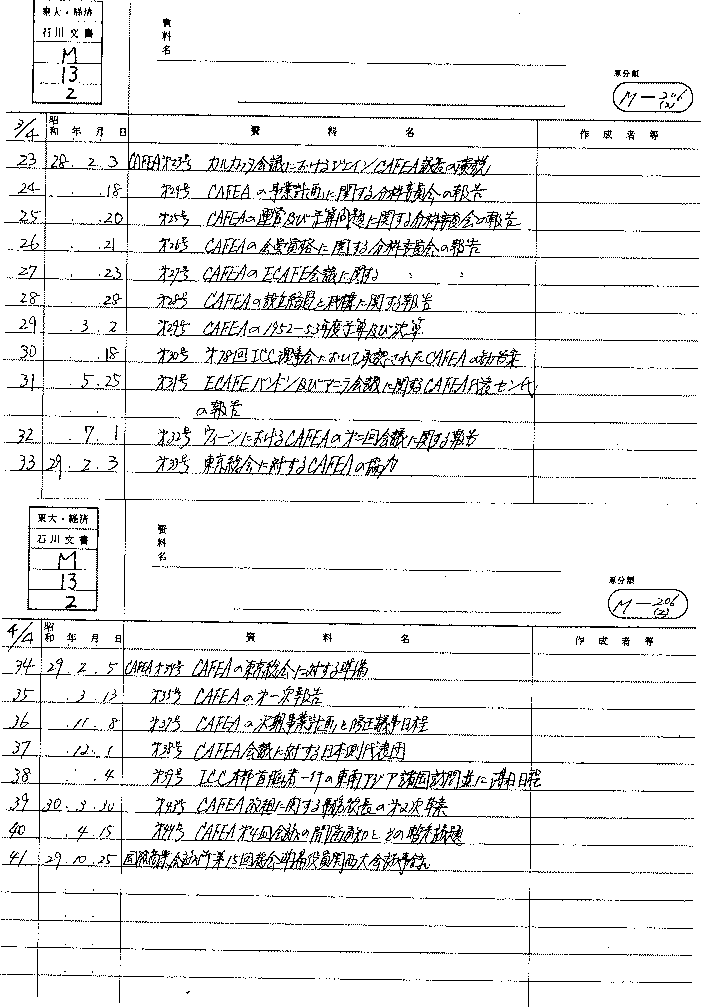 東大・経済
石川文書
M
13
2
資料名
原分類
M-206(2)
3/4 昭和 年 月 日 資料名 作成者等
23 28. 2. 3 CAFEA 第23号 カルカッタ会議におけるジェイン CAFEA 議長の演説
24 . . 18 第24号 CAFEAの事業計画に関する分科委員会の報告
25 . . 20 第25号 CAFEAの運営及び予算問題に関する分科委員会の報告
26 . . 21 第26号 CAFEAの会員資格に関する分科委員会の報告
27 . . 23 第27号 CAFEAのECAFE会議に関する 〃 〃
28 . . 28 第28号 CAFEAの設立経過と機構に関する報告
29 . 3. 2 第29号 CAFEAの1952-53年度予算及び決算
30 18 第30号 第78回ICC理事会において承認されたCAFEAの
31 . 5. 25 第31号 ECAFEバンドン及びマニラ会議に関するCAFEA代表セン氏
の報告
32 . 7. 1 第32号 ウィーンにおけるCAFEAの第二回会議に関する報告
33 29. 2. 3 第33号 東京総会に対するCAFEAの協力
東大・経済
石川文書
M
13
2
資料名
原分類
M-206(2)
4/4 昭和 年 月 日 資料名 作成者等
34 29. 2. 5 CAFEA 第34号 CAFEAの東京総会に対する準備
35 . 3. 13 第35号 CAFEAの第一次報告
36 . 11. 8 第37号 CAFEAの次期事業計画と修正議事日程
37 . 12. 1 第38号 CAFEA会議に対する日本側代表団
38 . . 4 第39号 ICC本部首脳者一行の東南アジア諸国訪問並に滞日日程
39 30. 3. 30 第43号 CAFEA改組に関する事務総長の第2次草案
40 . 4. 15 第44号 CAFEA第4回会議の開催通知とその暫定議題
41 29. 10. 25 国際商業会議所第15回総会